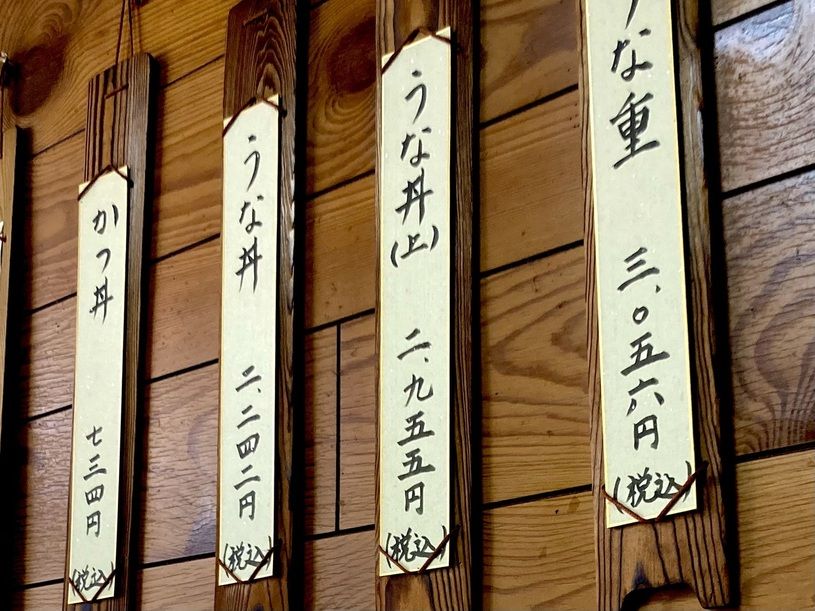 うな重 三、〇五六円 (税込)
うな丼(上) 二、九五五円 (税込)
うな丼 二、二四二円 (税込)
かつ丼 七三四円 (税込)